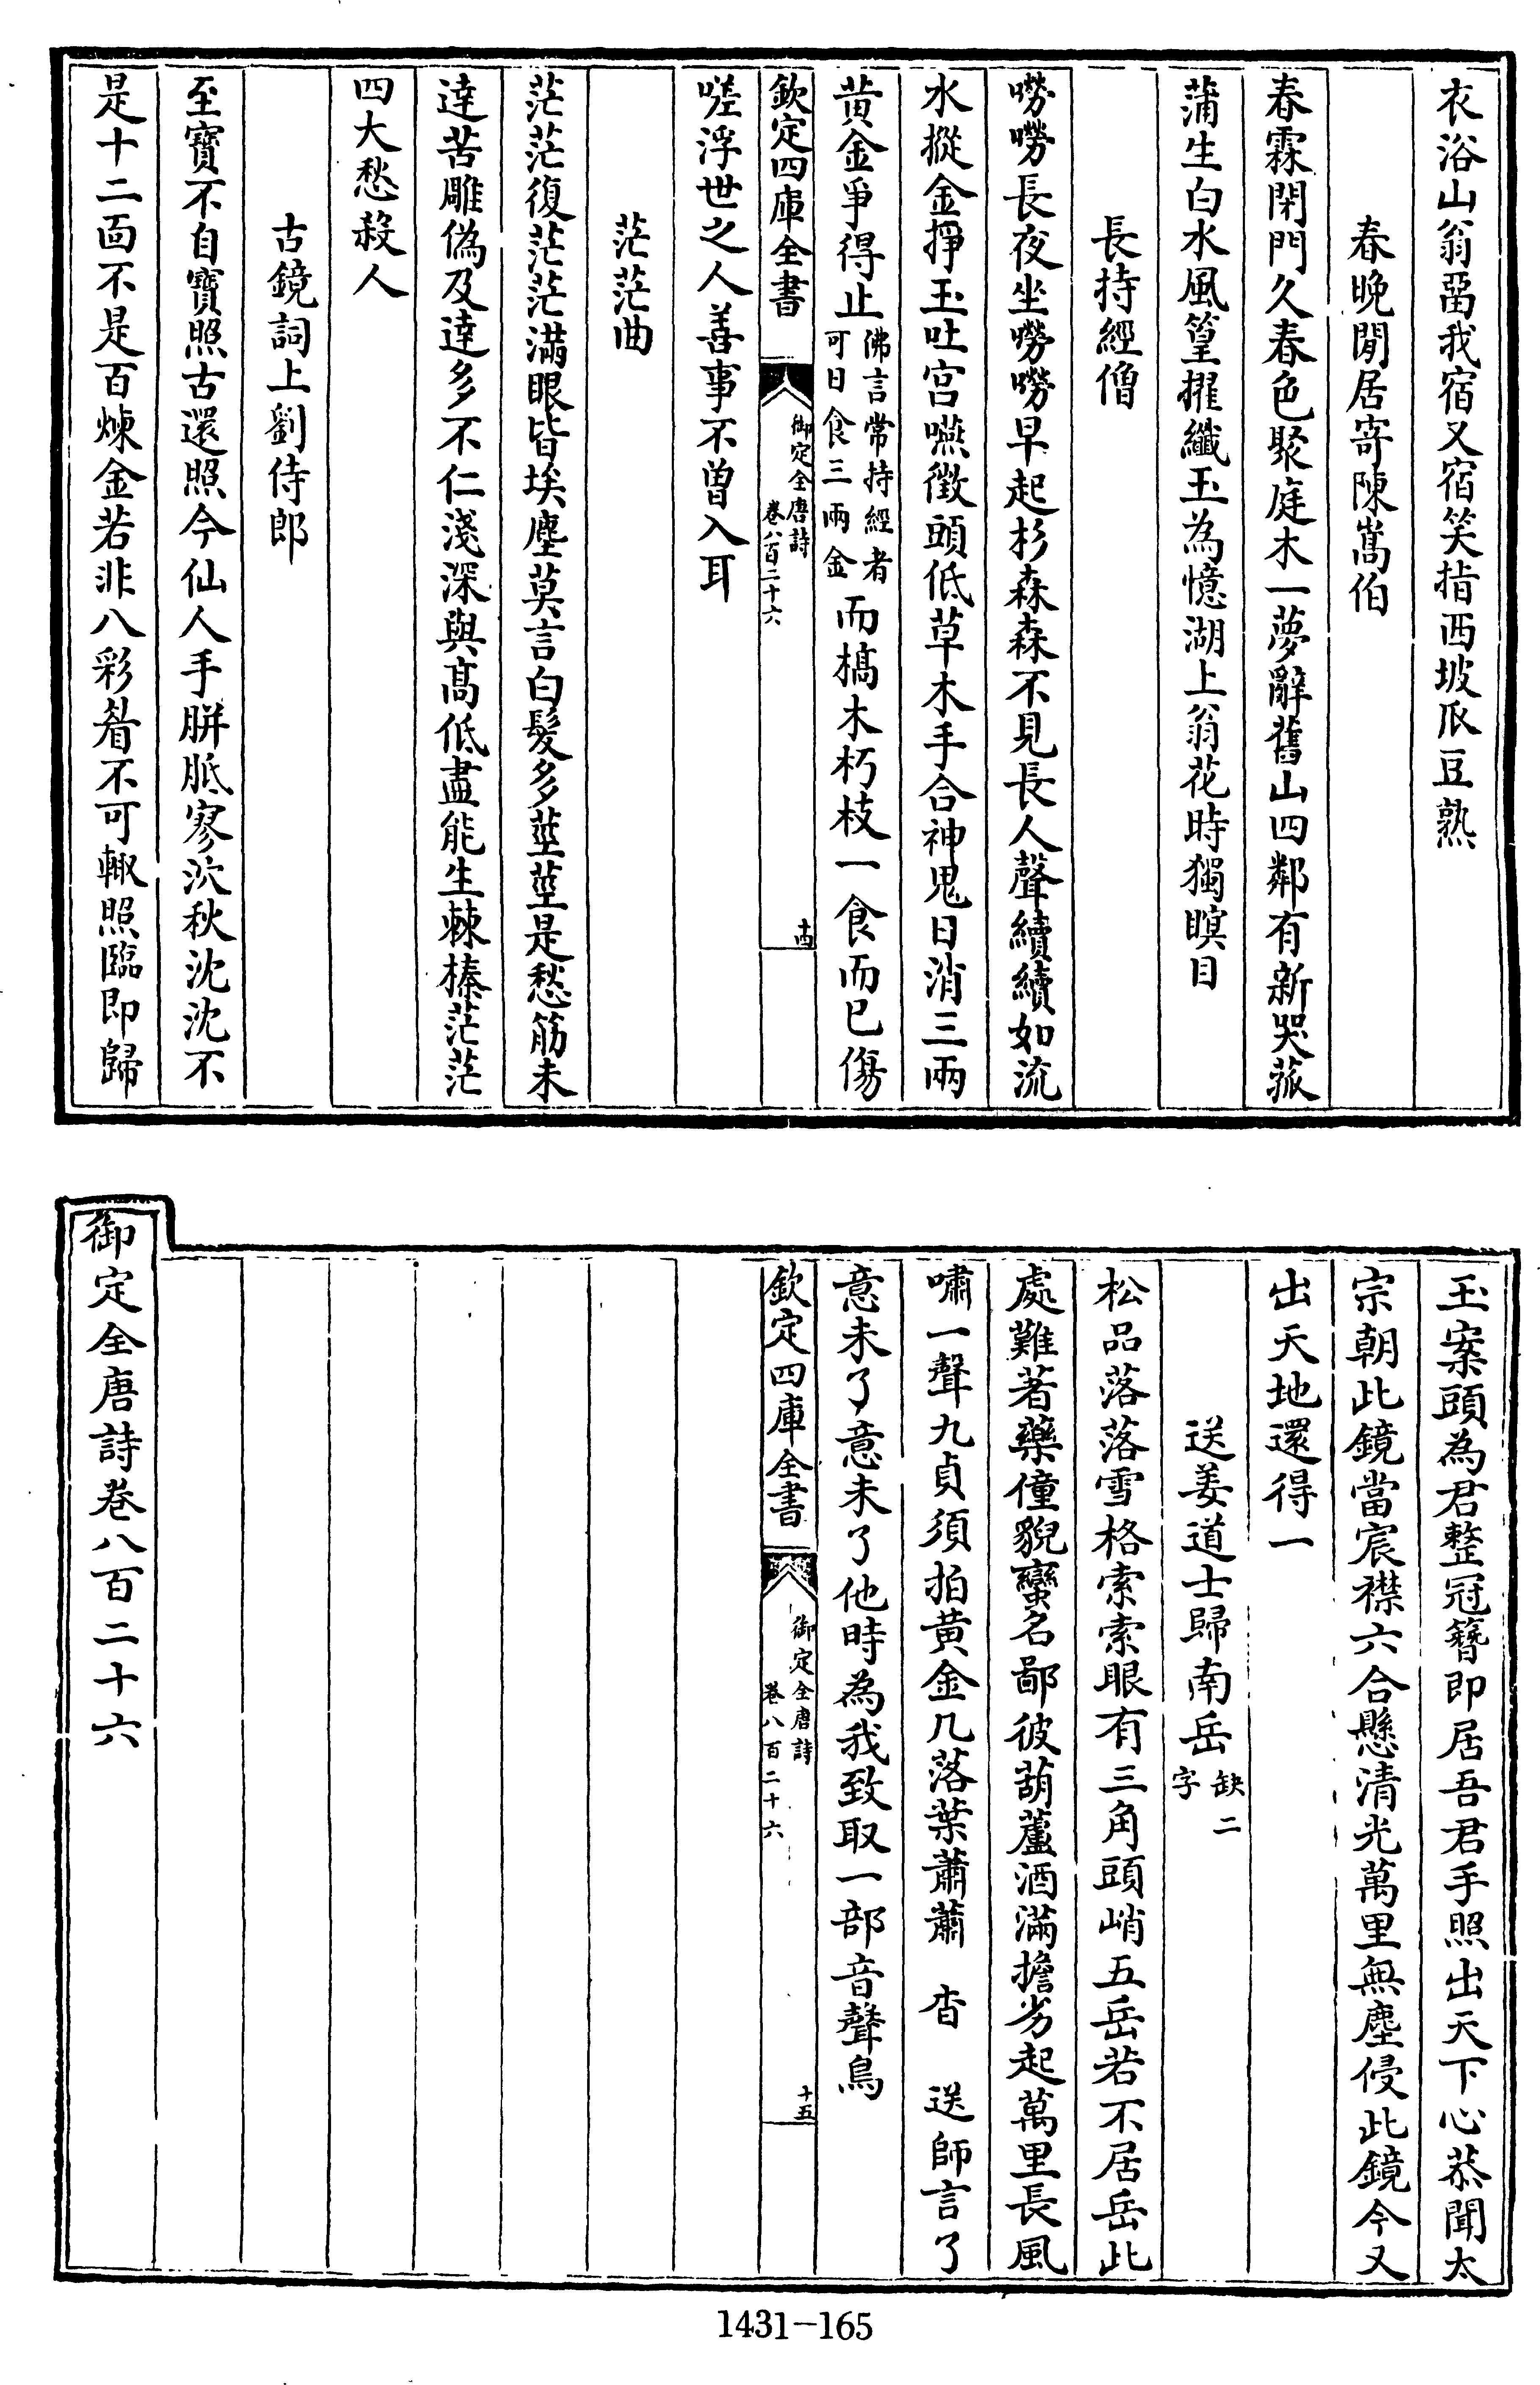 衣浴山翁畱我宿又宿笑指西坡瓜豆熟
春晚閒居寄陳嵩伯
春霖閉門久春色聚庭木一夢辭舊山四鄰有新哭菰
蒲生白水風篁擢纖玉為憶湖上翁花時獨瞑目
長持經僧
嘮嘮長夜坐嘮嘮早起杉森森不見長人聲續續如流
水摐金掙玉吐宮嚥徵頭低草木手合神鬼日消三兩
黄金爭得止佛言常持經者可日食三兩金而槁木朽枝一食而已傷
欽定四庫全書
御定全唐詩
卷八百二十六
十四
嗟浮世之人善事不曽入耳
茫茫曲
茫茫復茫茫滿眼皆埃塵莫言白髮多莖莖是愁筋未
達苦雕偽及達多不仁淺深與髙低盡能生棘榛茫茫
四大愁殺人
古鏡詞上劉侍郎
至寶不自寶照古還照今仙人手胼胝寥泬秋沈沈不
是十二面不是百煉金若非八彩眉不可輙照臨即歸
玉案頭為君整冠簪即居吾君手照出天下心恭聞太
宗朝此鏡當宸襟六合懸清光萬里無塵侵此鏡今又
出天地還得一
送姜道士歸南岳缺二字
松品落落雪格索索眼有三角頭峭五岳若不居岳此
處難著藥僮貎蠻名鄙彼葫蘆酒滿擔劣起萬里長風
嘯一聲九貞須拍黄金几落葉蕭蕭 杳 送師言了
意未了意未了他時為我致取一部音聲鳥
欽定四庫全書
御定全唐詩
卷八百二十六
十五
御定全唐詩卷八百二十六
1431-165